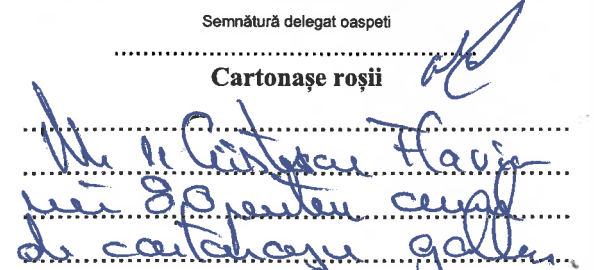 Semnătură delegat oaspeti
Cartonașe roșii
Nr 11 Cristescu Flavian
min 80 pentru cumul
de cartonașe galbene